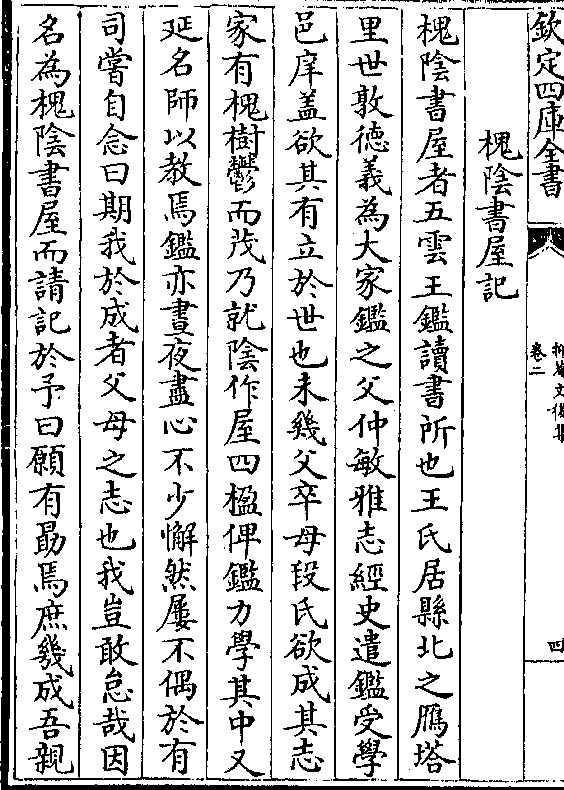 欽定四庫全書
卷二
四
槐陰書屋記
槐陰書屋者五雲王鑑讀書所也王氏居縣北之鴈塔
里世敦徳義為大家鑑之父仲敏雅志經史遣鑑受學
邑庠盖欲其有立於世也未幾父卒母段氏欲成其志
家有槐樹鬱而茂乃就陰作屋四楹俾鑑力學其中又
延名師以教焉鑑亦晝夜盡心不少懈然屢不偶於有
司嘗自念曰期我於成者父母之志也我豈敢怠哉因
名為槐陰書屋而請記於予曰願有勗焉庶幾成吾親